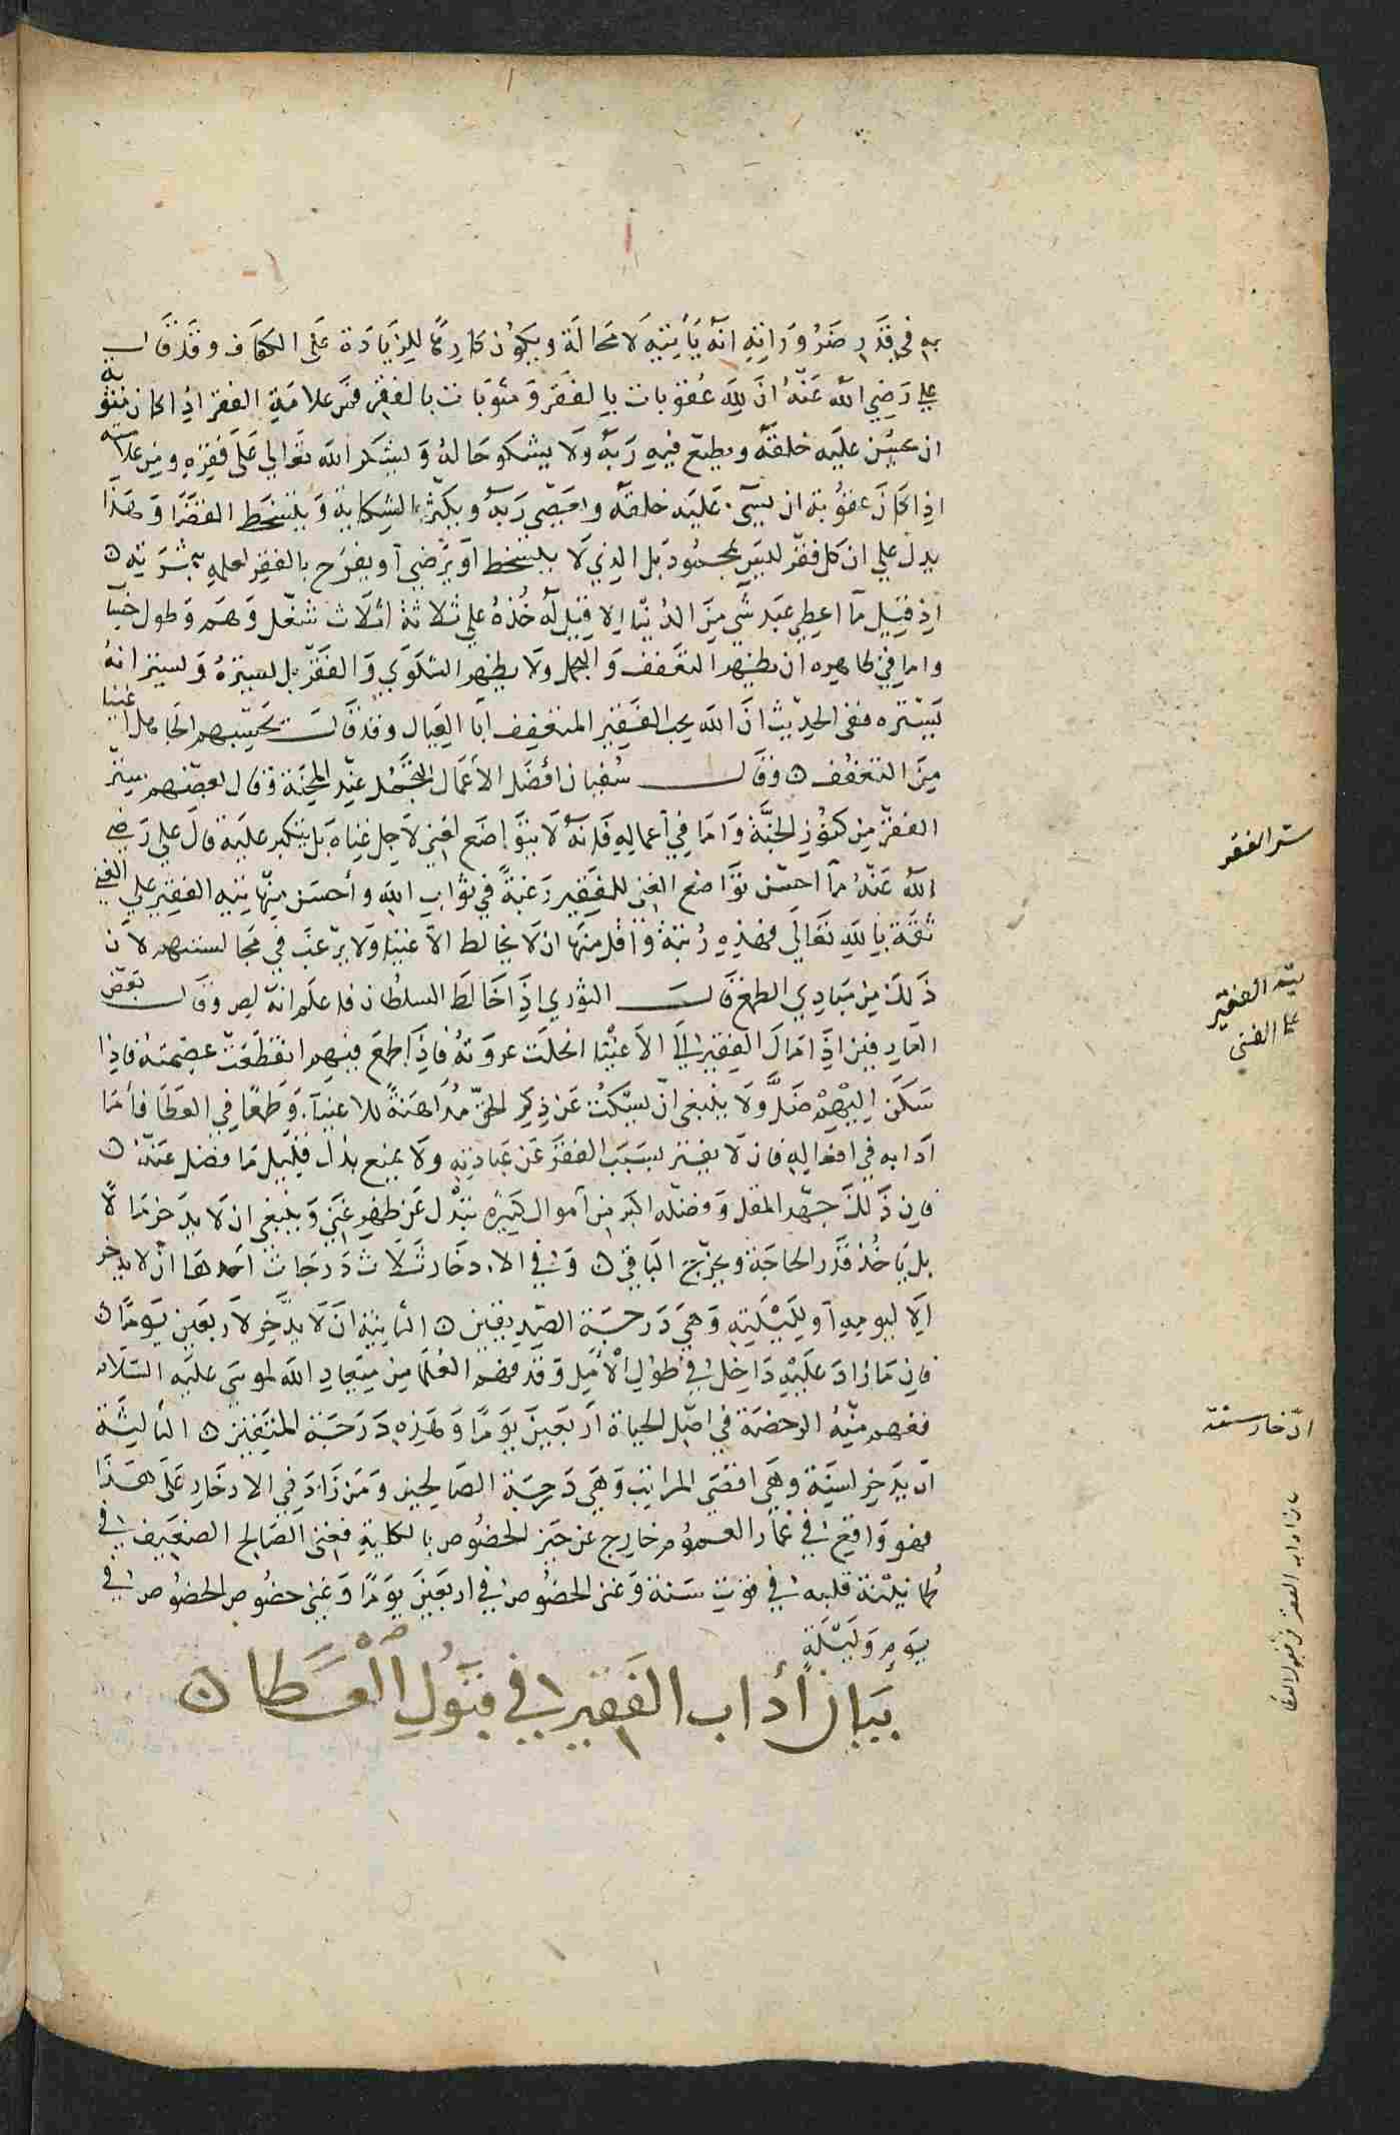 به في قدر ضرورانه انه يأتيه لا محالة ويكون كارها للزيادة على الكفاف وقد قال
علي رضي الله عنه ان لله عقوبات بالفقر ومثوبات بالفقر فمن علامة الفقر اذا كان مثوبة
ان يحسن عليه خلقه ويطيع فيه ربه ولا يشكو حاله ويشكر الله تعالي على فقره ومن علامته
اذا كان عقوبة ان يسيء عليه خلقه ويعصي ربه ويكثر الشكاية ويتسخط القضا وهذا
يدل علي ان كل فقر ليس بمحمود بل الذي لا يتسخط او يرضي او يفرح بالفقر لعلمه بثمرته ۞
اذ قيل ما اعطي عبد شي من الدنيا الا قيل له خذه علي ثلاثة اثلاث شغل وهم وطول حساب
واما في ظاهره ان يظهر التعفف والتجمل ولا يظهر الشكوي والفقر بل يستره ويستر انه
يستره ففي الحديث ان الله يحب الفقير المتعفف ابا العيال وقد قال يحسبهم الجاهل اغنيا
من التعفف ۞ وقال سفيان افضل الاعمال التجمل عند المحنة وقال بعضهم ستر
الفقر من كنوز الجنة واما في اعماله فانه لا يتواضع لغني لاجل غناه بل يتكبر عليه قال علي رضي
الله عنه ما احسن تواضع الغني للفقير رغبة في ثواب الله وأحسن منها تيه الفقير علي الغني
ثقة بالله تعالى فهذه رتبة واقل منها ان لا يخالط الاغنيا ولا يرغب في مجالستهم لان
ذلك من مبادي الطمع قال الثوري اذا خالط السلطان فاعلم انه لص وقال بعض
العارفين اذا مال الفقير الى الاغنيا انحلت عروته فاذا طمع فيهم انقطعت عصمته فاذا
سكن اليهم ضل ولا ينبغي ان يسكت عن ذكر الحق مداهنة للاغنياء وطمعا في العطا فأما
ادابه في افعاله فان لا يفتر بسبب الفقر عن عبادته ولا يمنع بذل قليل ما فضل عنه ۞
فان ذلك جهد المقل وفضله اكبر من اموال كثيرة تبذل عن ظهر غنى وينبغي ان لا يدخر مالا
بل يأخذ قدر الحاجة ويخرج الباقي ۞ وفي الادخار ثلاث درجات احدها ان لا يدخر
الا ليومه او لليلته وهي درجة الصديقين ۞ الثانية ان لا يدخر لاربعين يوما ۞
فان ما زاد عليه داخل في طول الأمل وقد فهم العلما من ميعاد الله لموسى عليه السلام
ففهم منه الرخصة في اصل الحياة اربعين يوما وهذه درجة المتقين ۞ الثالثة
ان يدخر لسنة وهي اقصى المراتب وهي درجة الصالحين ومن زاد في الادخار على هذا
فهو واقع في غمار العموم خارج عن حيز الخصوص بالكلية فغنى الصالح الضعيف في
طمانينة قلبه في قوت سنة وغنى الخصوص في اربعين يوما وغنى خصوص الخصوص في
يوم وليلة
بيان أداب الفقير في قبول العطا ۞
ستر الفقر
تيه الفقير
على الغني
ادخار سنة
بيان اداب الفقير في قبول العطا